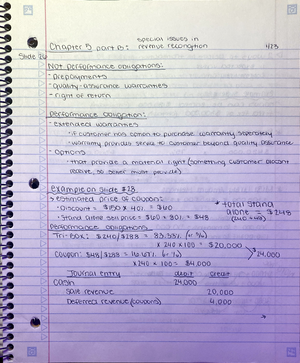 special issues in
Chapter 5 part B: revenue recognition 4/23
Slide 26
Not performance obligations:
· Prepayments
· quality-assurance warranties
· right of return
Performance Obligation:
· extended warranties
· if customer has option to purchase warranty separately
· warranty provides service to customer beyond quality assurance
· Options
· that provide a material right (something customer
receive, so seller must provide)
Example on Slide #28
estimated price of coupon:
· Discount = $150 × 40% = $60
· Stand alone sell price = $60 × 80% = $48
* total stand
alone = $288
(240+48)
Performance obligations
Tri-box: $240/$288 = 83.33%
× 240 × 100 = $20,000
Coupon: $48/$288 = 16.67%
× 240 × 100 = $4,000
$24,000
Journal Entry debit credit
Cash 24,000
Sale revenue 20,000
Deferred revenue (coupons) 4,000